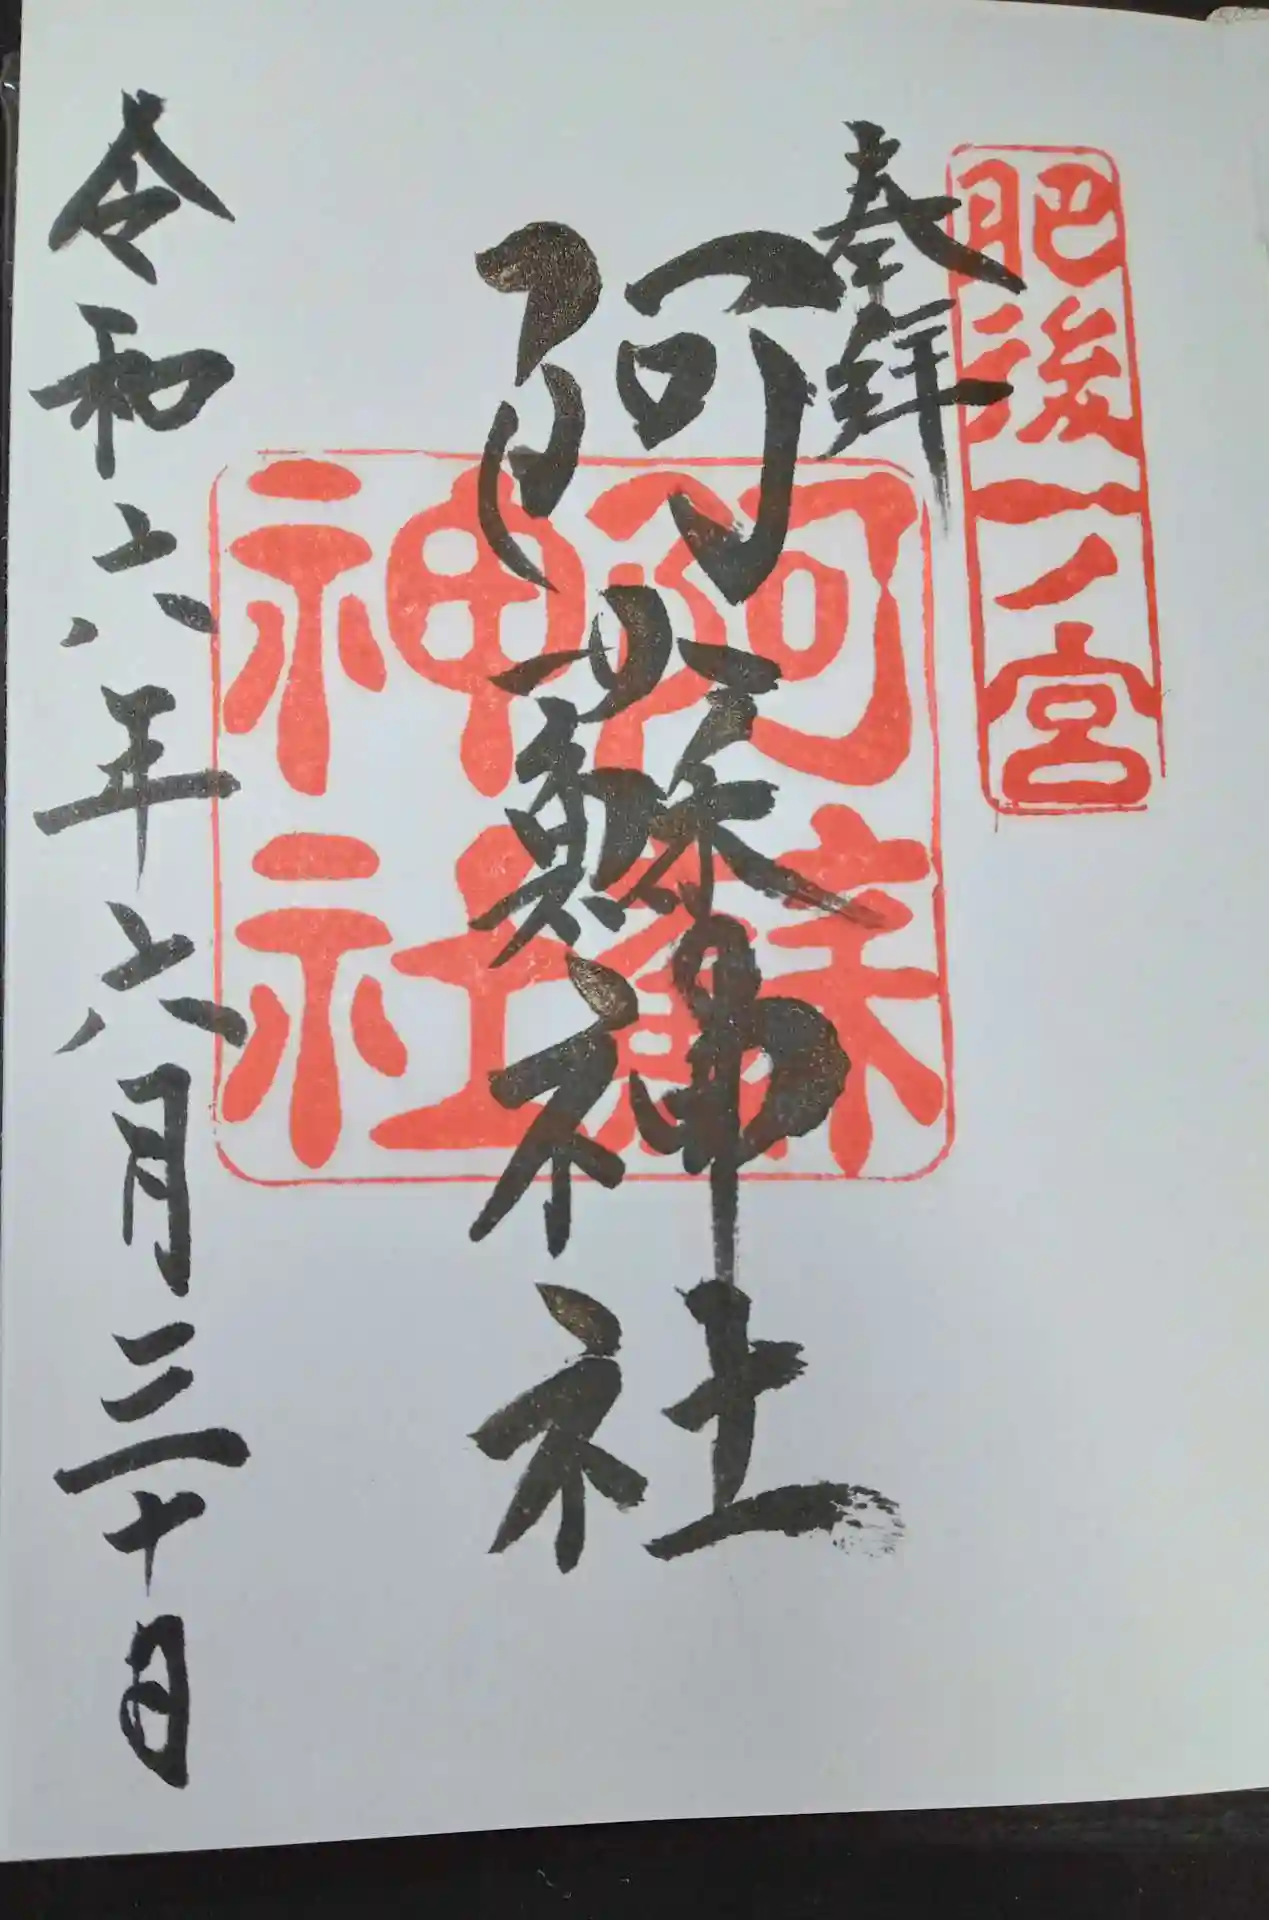 肥後一ノ宮
奉拝
阿蘇神社
阿蘇
神社
令和六年六月三十日